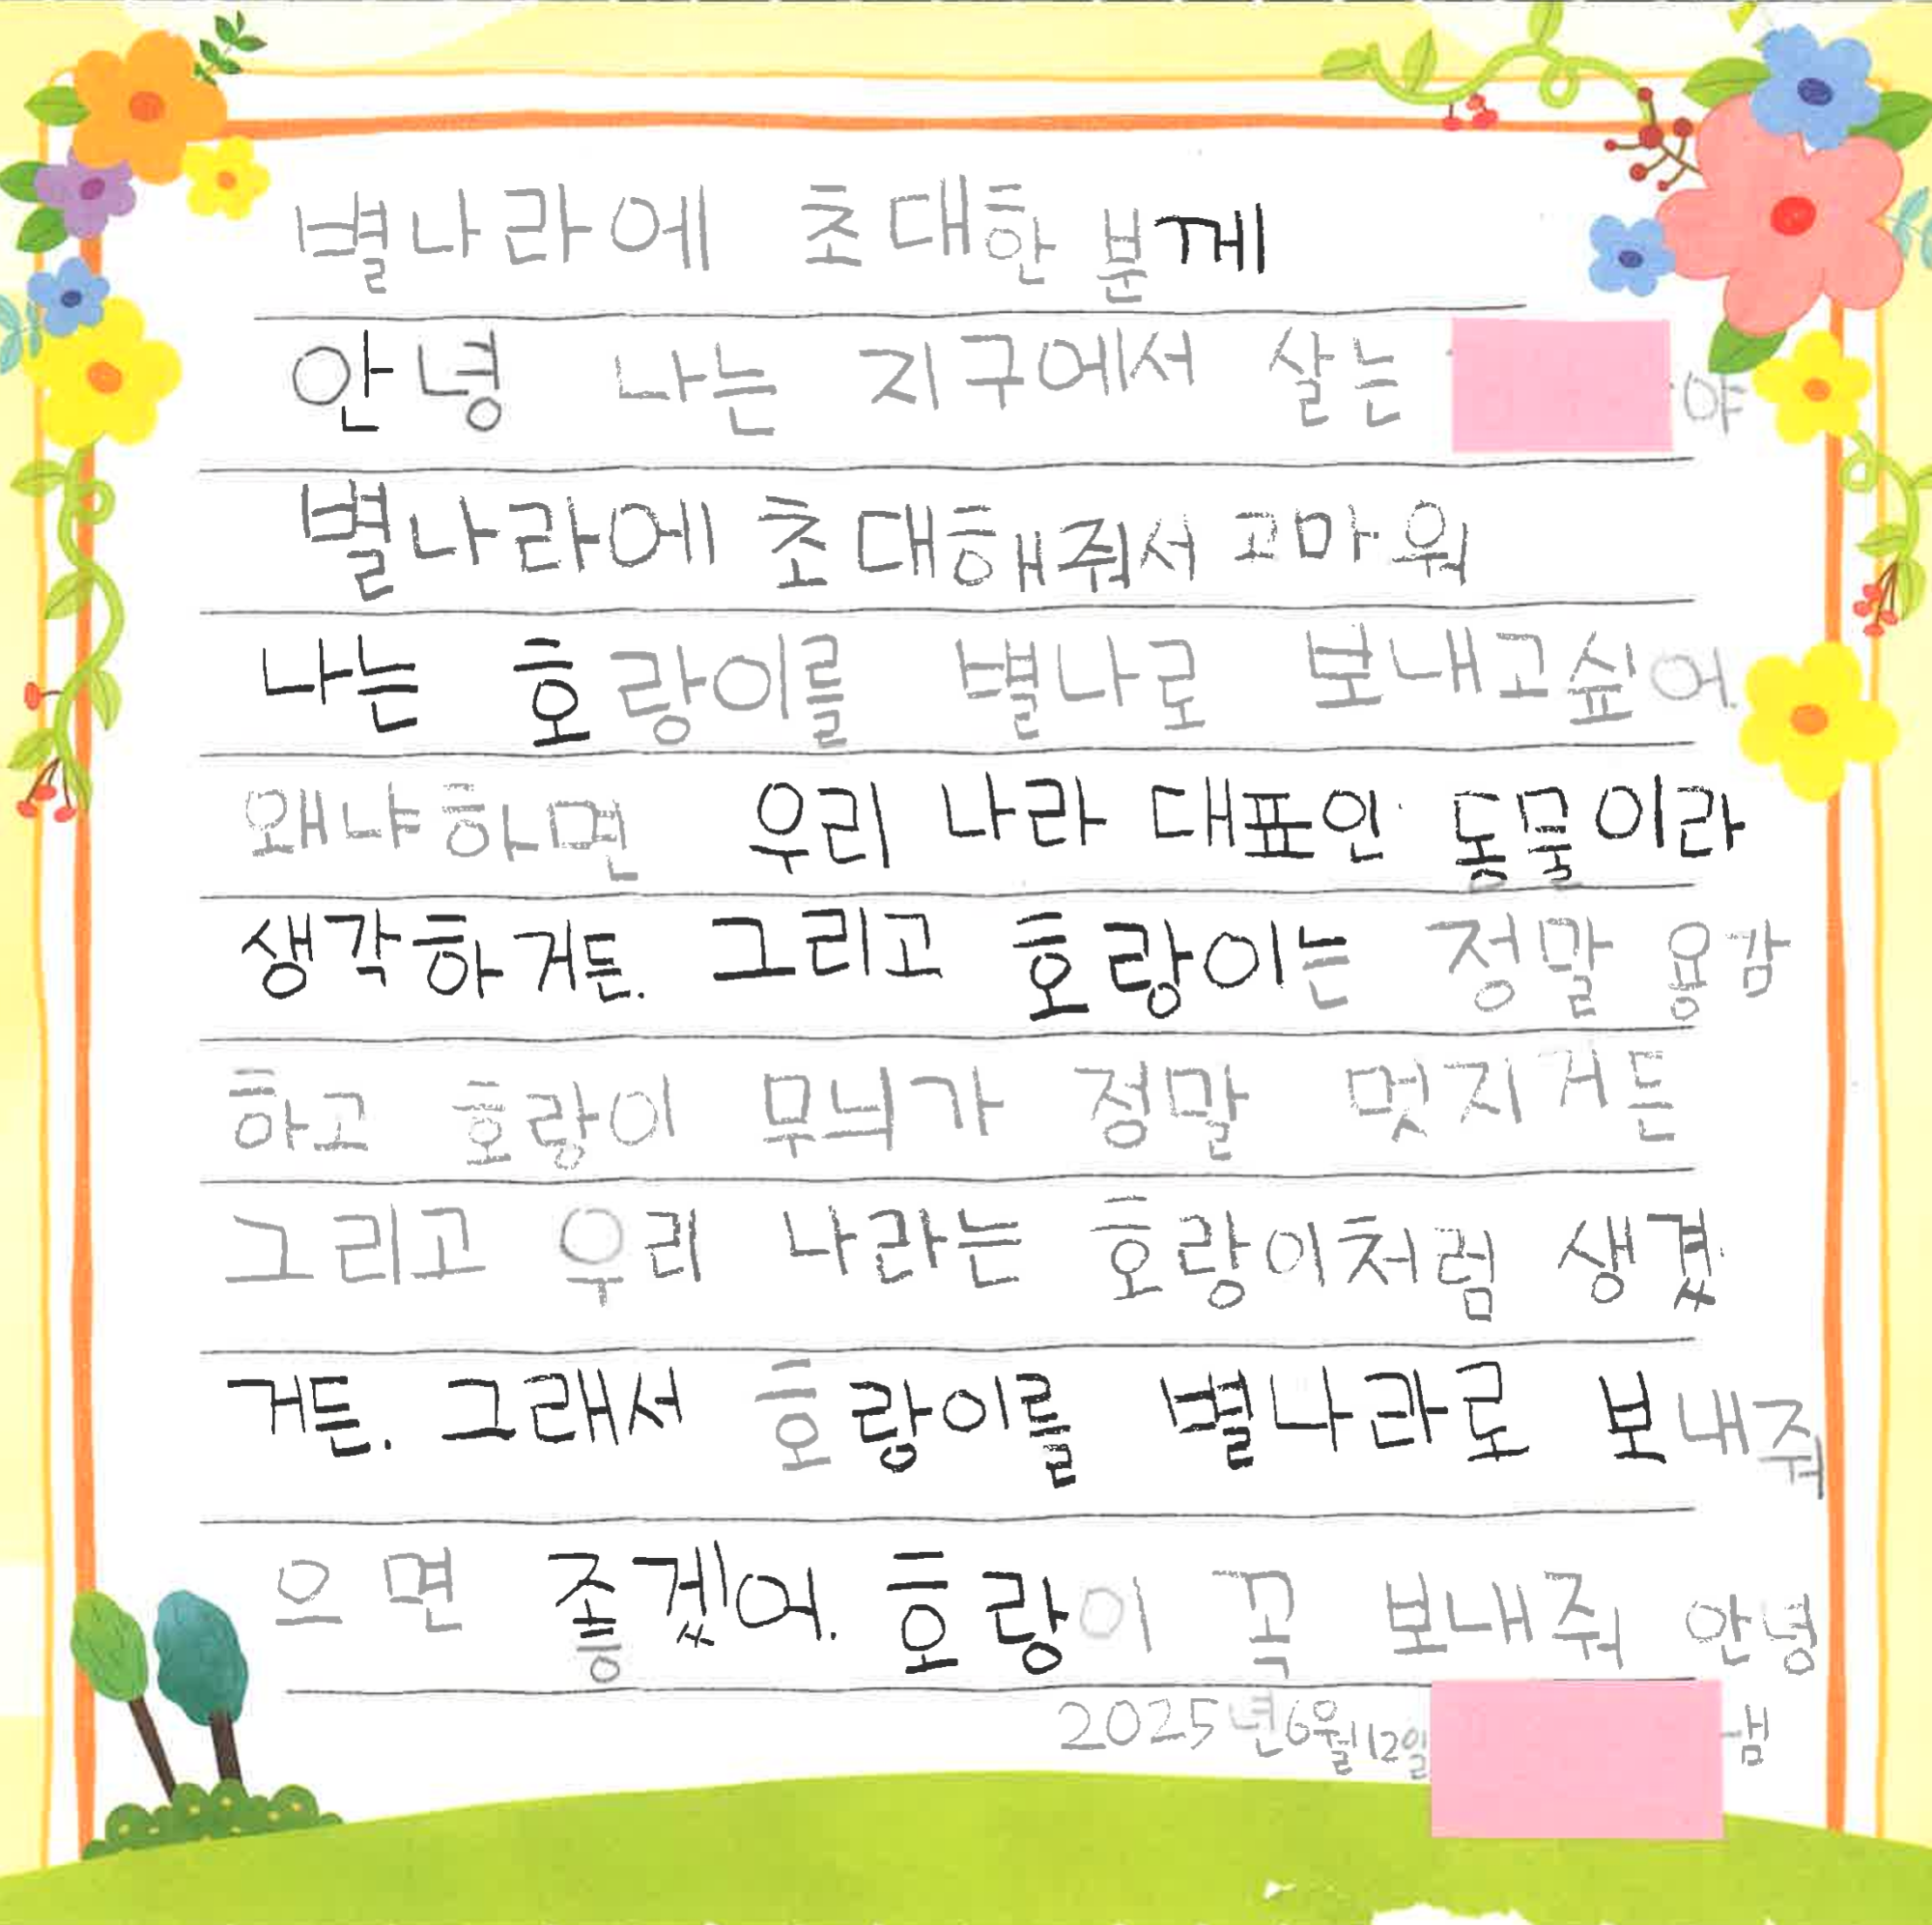 별나라에 초대한 분께
안녕 나는 지구에서 살는 야
별나라에 초대해줘서 고마워
나는 호랑이를 별나로 보내고싶어.
왜냐하면 우리 나라 대표인 동물이라
생각하거든. 그리고 호랑이는 정말 용감
하고 호랑이 무늬가 정말 멋지거든
그리고 우리 나라는 호랑이처럼 생겼
거든. 그래서 호랑이를 별나라로 보내줘
으면 좋겠어. 호랑이 꼭 보내줘 안녕
2025년6월12일 냄